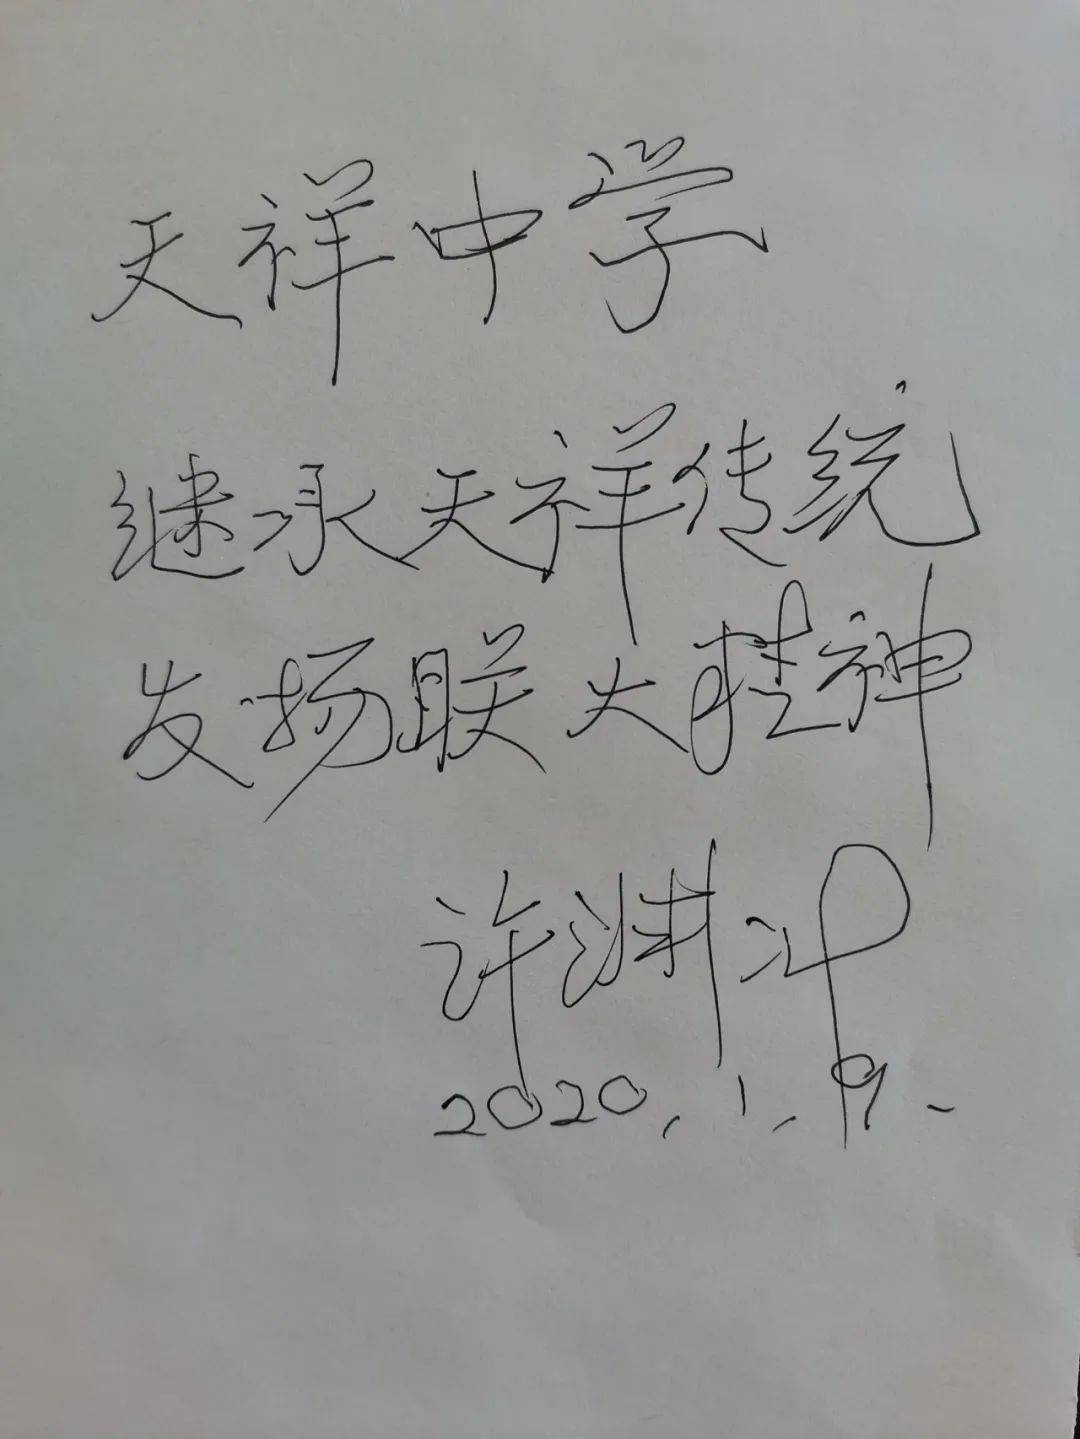 天祥中学
继承天祥传统
发扬联大精神
许渊冲
2020.1.9.